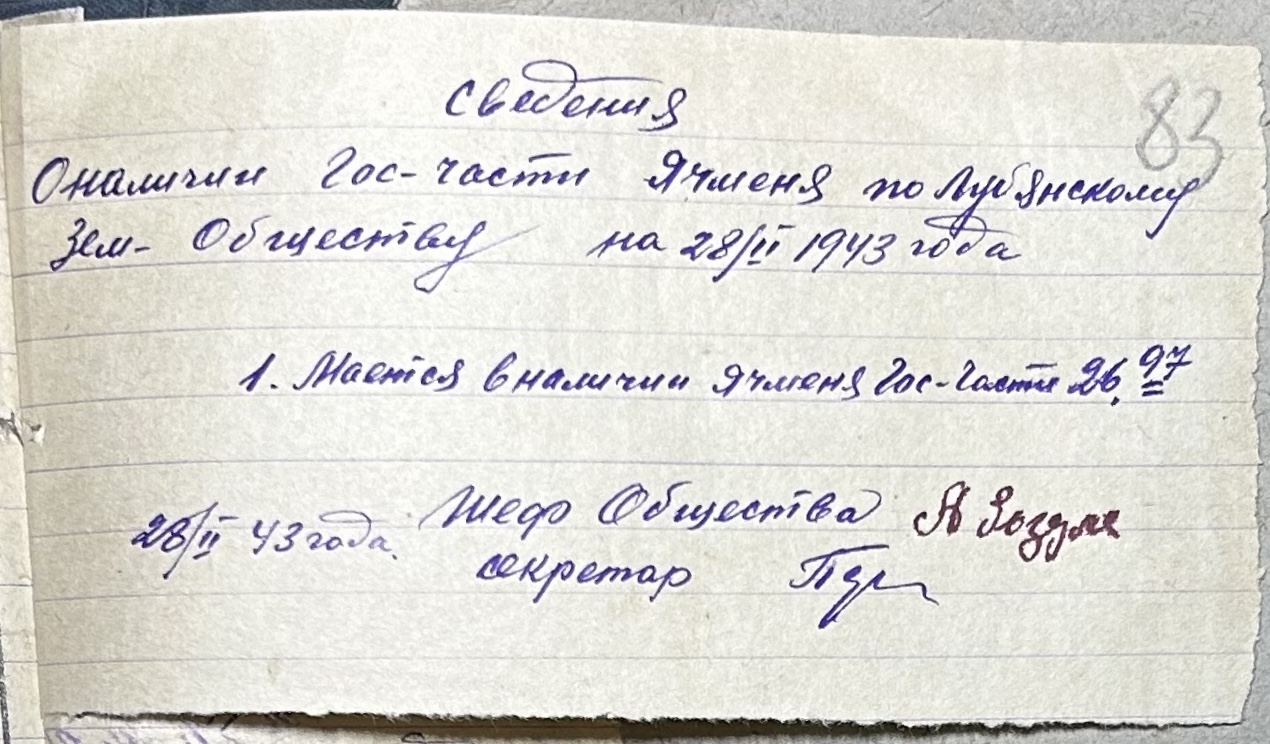 83
Сведения
О наличии Гос-части Ячменя по Лубянскому
Зем- Обществу на 28/II 1943 года
1. Мается в наличии ячменя Гос-части 26,97
Шеф Общества
28/II 43 года.
секретар